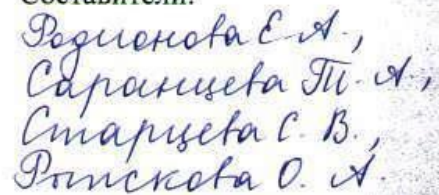 Составители:
Родионова Е. А.,
Саранцева Т. А.,
Старцева С. В.,
Рыпскова О. А.